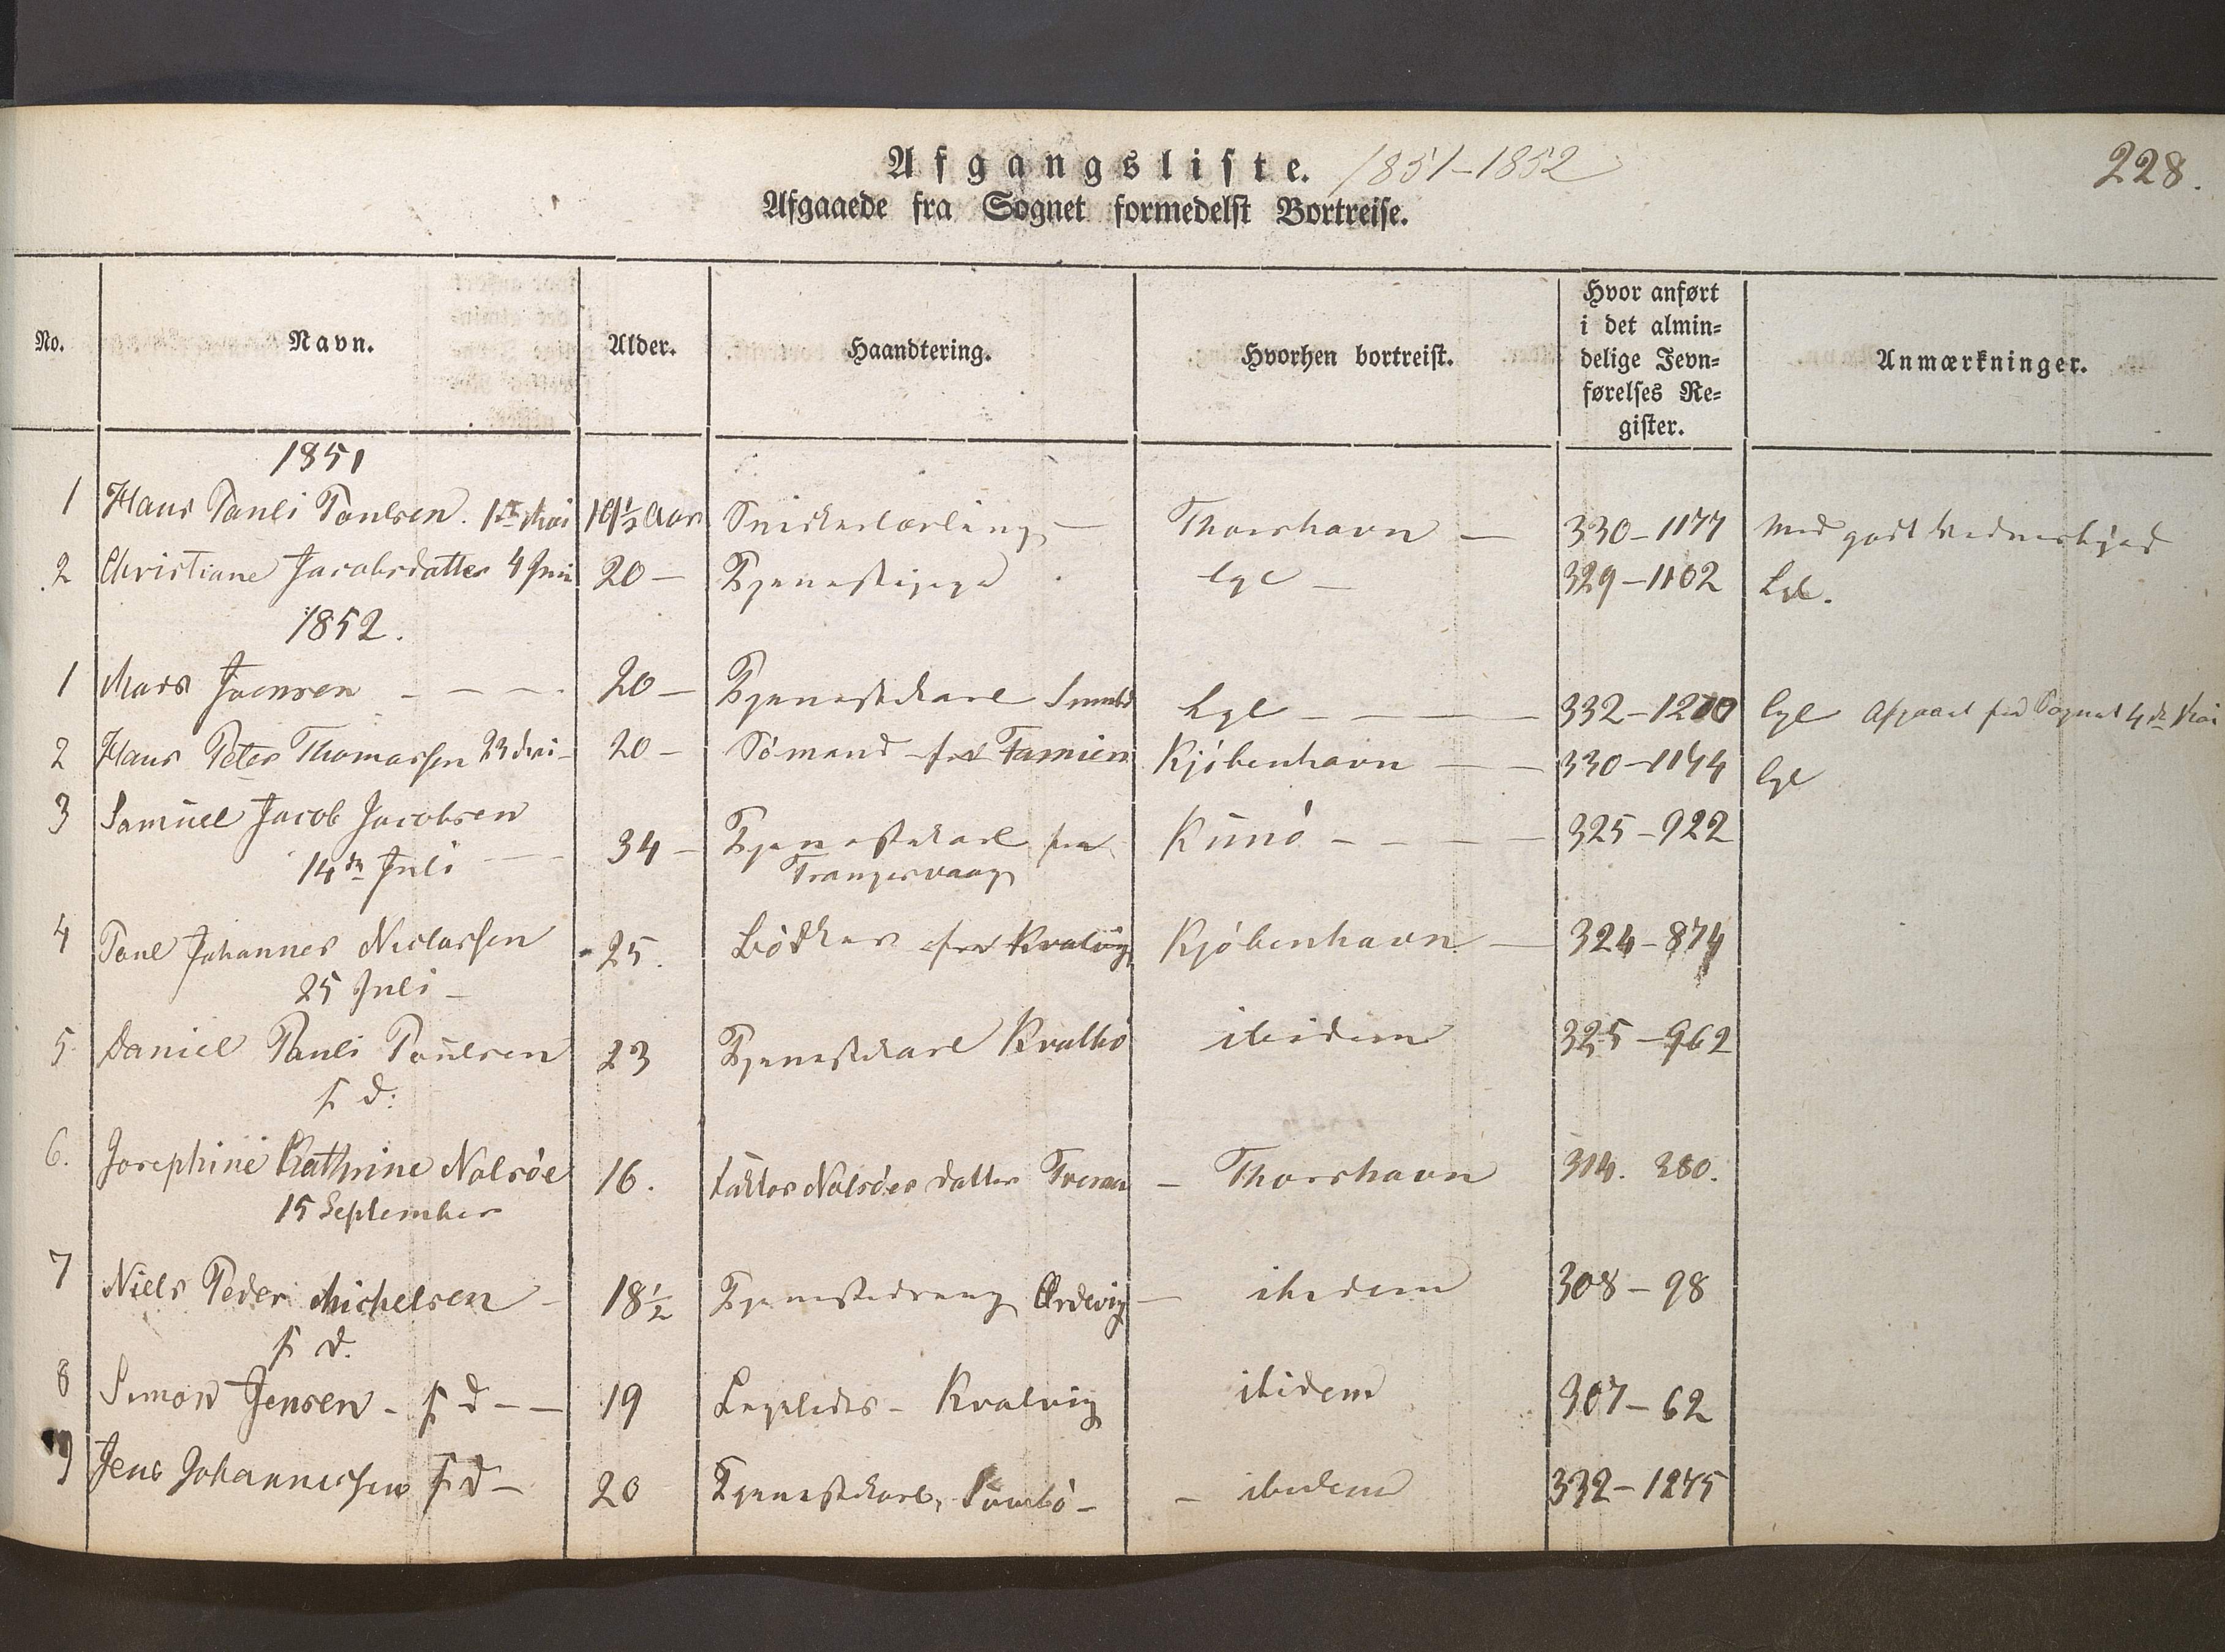 Afgangsliste. 1851-1852
228.
Afgaaede fra Sognet formedelst Bortreise.
No. Navn. Alder. Haandtering. Hvorhen bortreist. Hvor anført i det almin= delige Jevn= førelses Re= gister. Anmærkninger.
1851
1 Hans Pauli Poulsen. 1ste Mai 19½ Aar Snickerlærling — Thorshavn — 330-1177 Med godt Vidnesbyrd
2 Christiane Jacobsdatter 4 Juni 20 — Tjenestepige lige — 329-1102 Lige.
1852.
1 Mads Joensen - - - - 20 — Tjenestekarl Sumbö Lige - - - 332-1200 lige Afgaaet fra Sognet 4de Mai
2 Hans Peter Thomassen 23 Mai - 20 - Sömand fra Famien Kjöbenhavn — — 330-1144 lige
3 Samuel Jacob Jacobsen
14de Juli - - - 34 - Tjenestekarl fra Trangisvaag Kunö - - - - 325-922
4 Poul Johannes Niclassen
25 Juli - 25. Bödker fra Kvalvig Kjöbenhavn — 324-874
5 Daniel Pauli Poulsen
s d: 23 Tjenestekarl Kvalbö ibidem 325-962
6. Josephine Kathrine Nolsöe
15 September 16. Faktor Nolsöes datter - Thorshavn 314. 380.
7 Niels Peder Michelsen -
s d. 18½ Tjenestedreng Ördevig — ibidem 308-98
8 Simon Jensen - s d - - 19 - Kvalvig ibidem 307-62
9 Jens Johannessen s d - 20 Tjenestekarl, Sumbö - - ibidem 332-1245